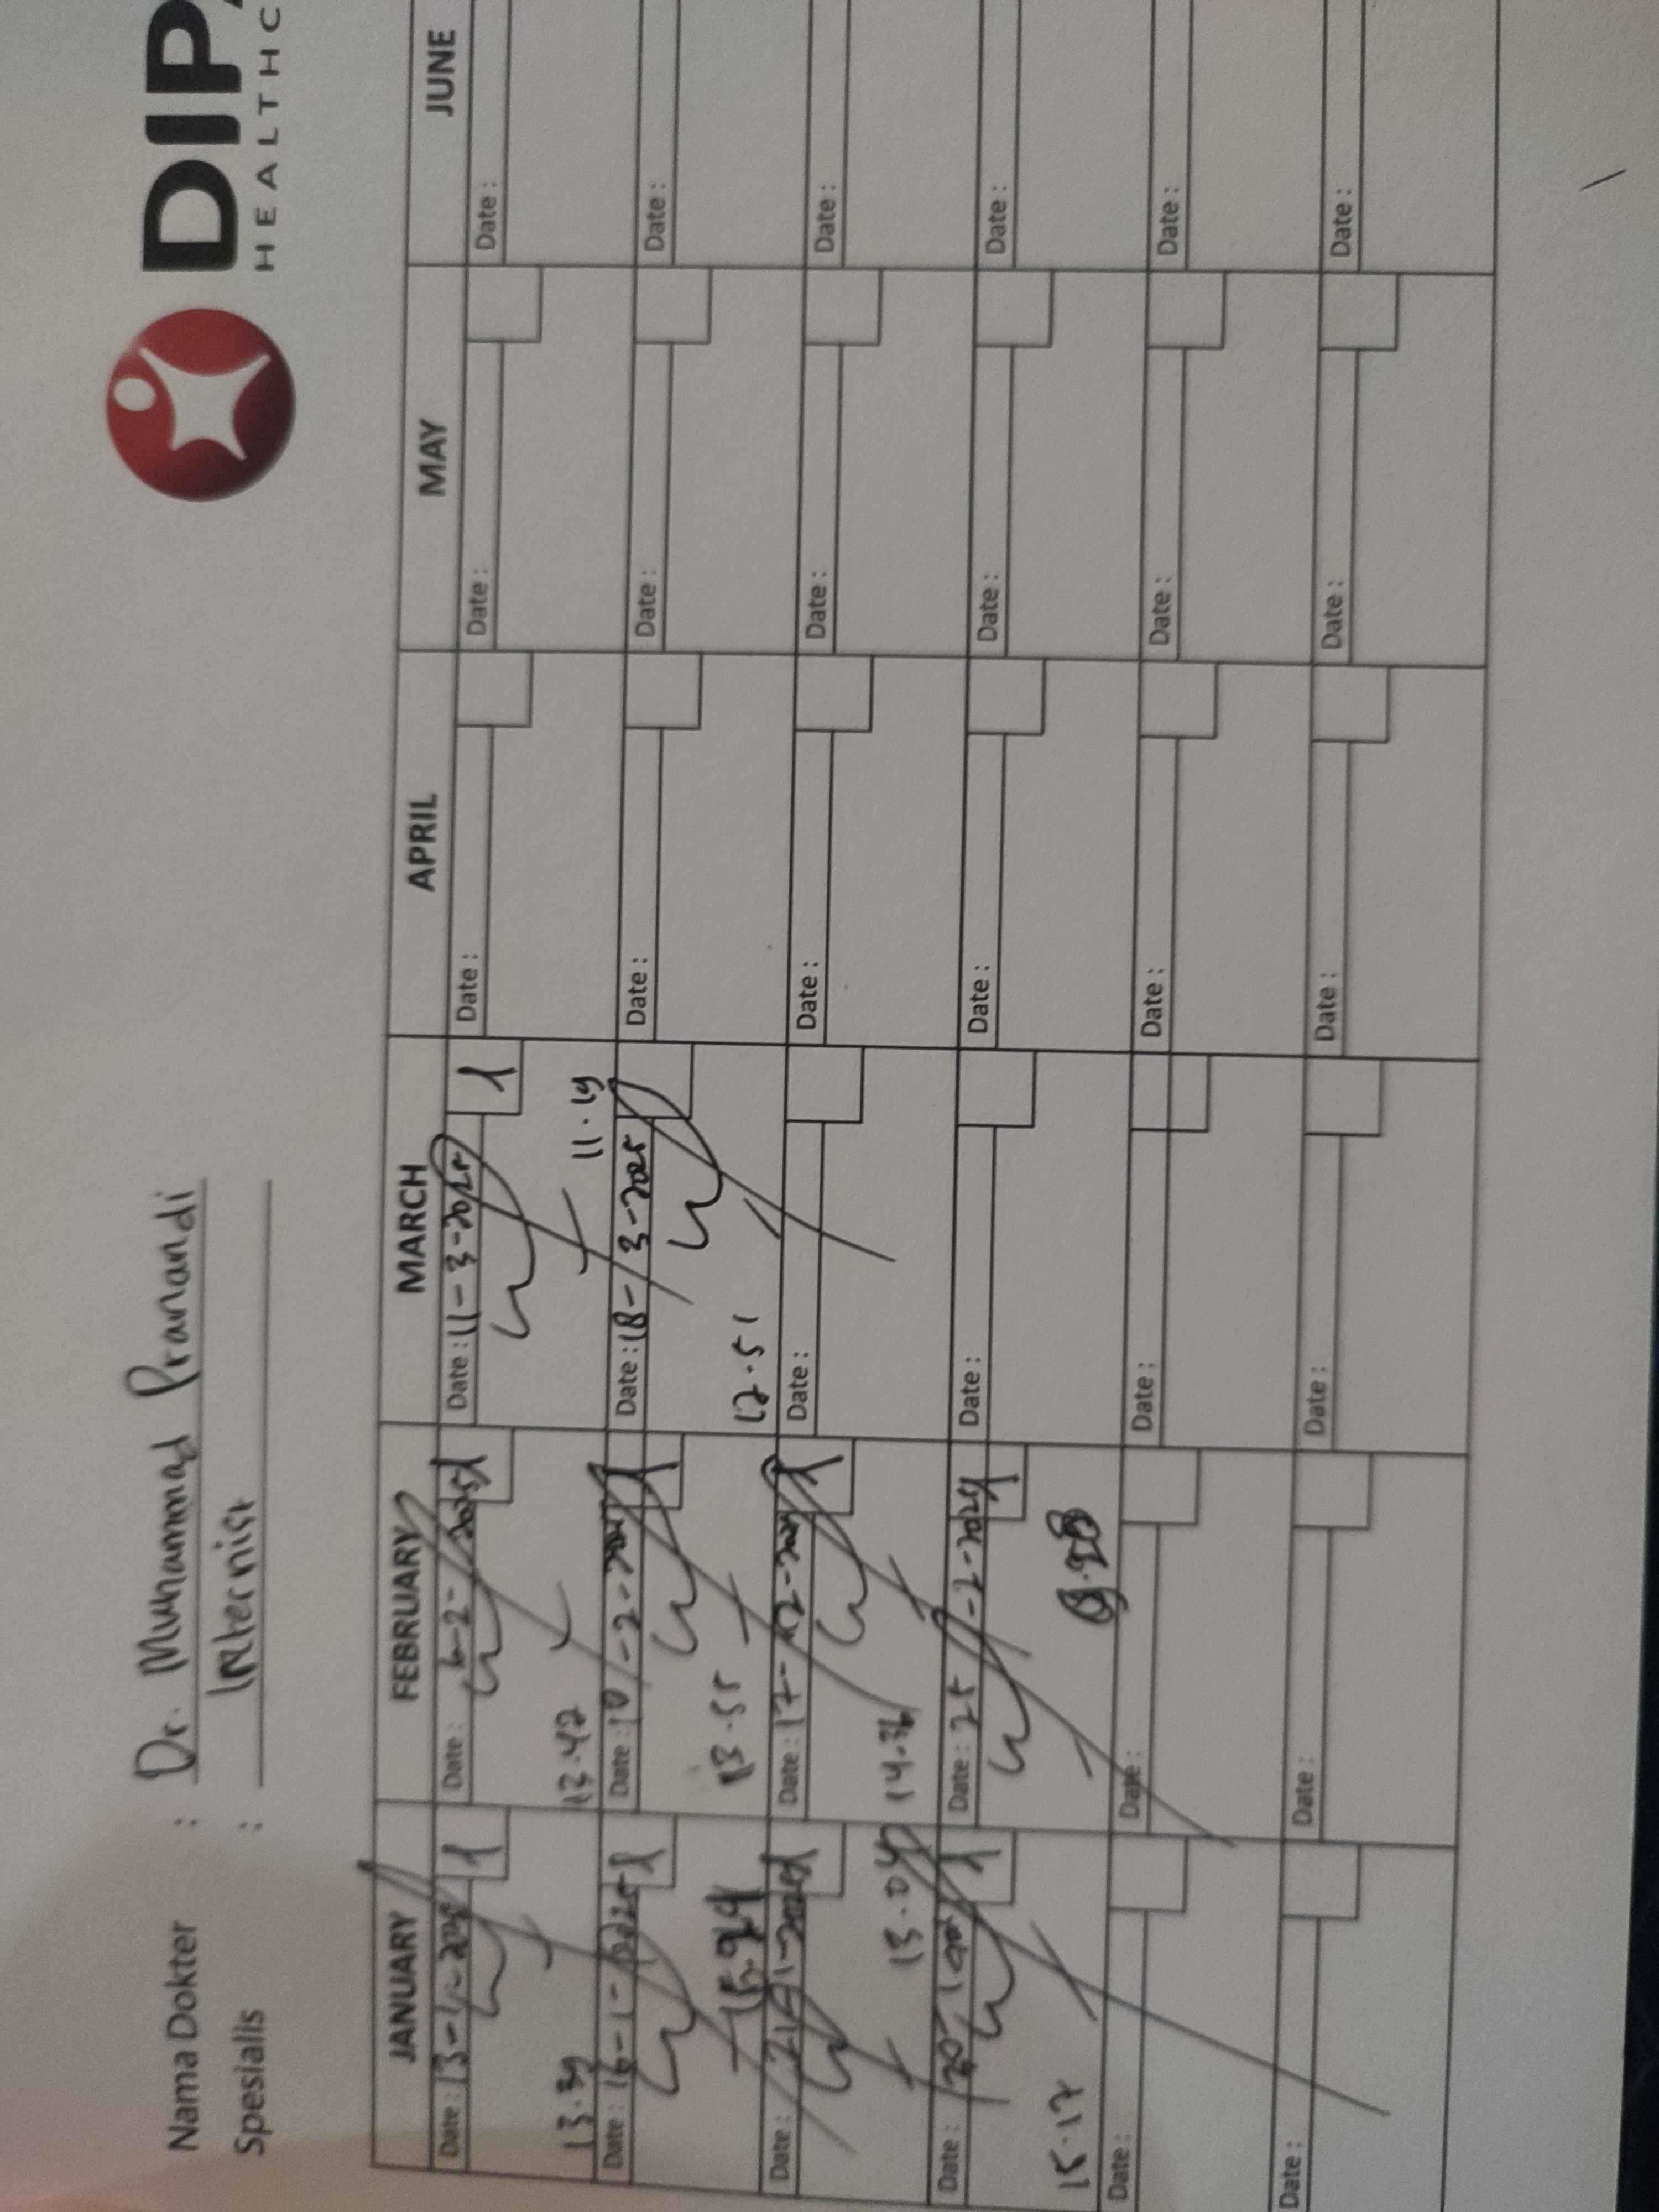 DIP
HEALTHC
Nama Dokter : Dr. Muhammad Pranandi
Spesialis : Internist
JANUARY FEBRUARY MARCH APRIL MAY JUNE
Date : 13-1-2025 1 Date : 6-2-2025 1 Date : 11-3-2025 1 Date : Date : Date :
13.39 13.42 11.19
Date : 16-1-2025 1 Date : 10-2-2025 1 Date : 18-3-2025 Date : Date : Date :
13.55 12.51
Date : 21-1-2025 1 Date : 17-2-2025 1 Date : Date : Date : Date :
13.04 14.36
Date : 1 Date : 25-2-2025 1 Date : Date : Date : Date :
15.17
Date : Date : Date : Date : Date : Date :
Date : Date : Date : Date : Date : Date :